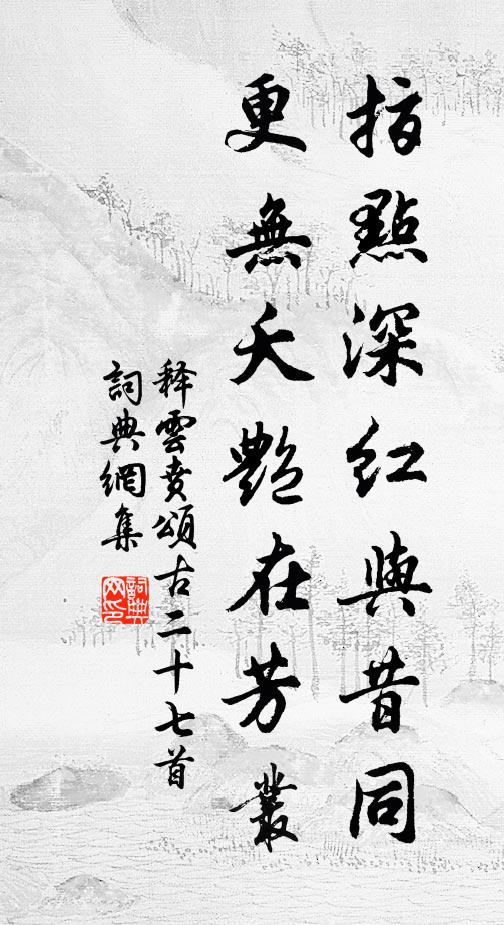 指點深紅與昔同
更無夭艷在芳叢
释雲賁頌古二十七首
詞典網集